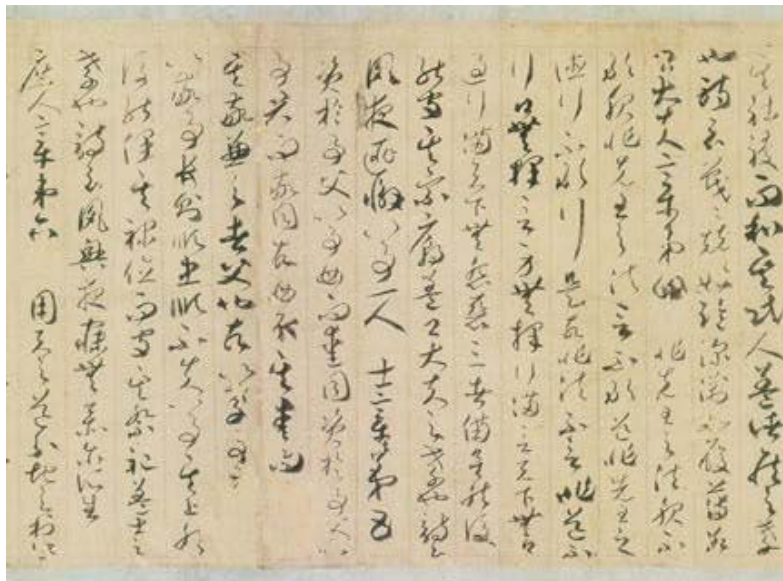 其社稷而和其民人蓋諸侯之孝
也詩云戰戰兢兢如臨深淵如履薄冰
卿大夫章第四 非先王之法服不
敢服非先王之法言不敢道非先王之
德行不敢行是故非法不言非道不
行口無擇言身無擇行言滿天下無口
過行滿天下無怨惡三者備矣然後
能守其宗廟蓋卿大夫之孝也詩云
夙夜匪懈以事一人 士章第五
資於事父以事母而愛同資於事父以
事君而敬同故母取其愛而
其敬兼之者父也故以孝事君
以敬事長則順忠順不失以事其上然
後能保其祿位而守其祭祀蓋士之
孝也詩云夙興夜寐無忝爾所生
庶人章第六 用天之道分地之利